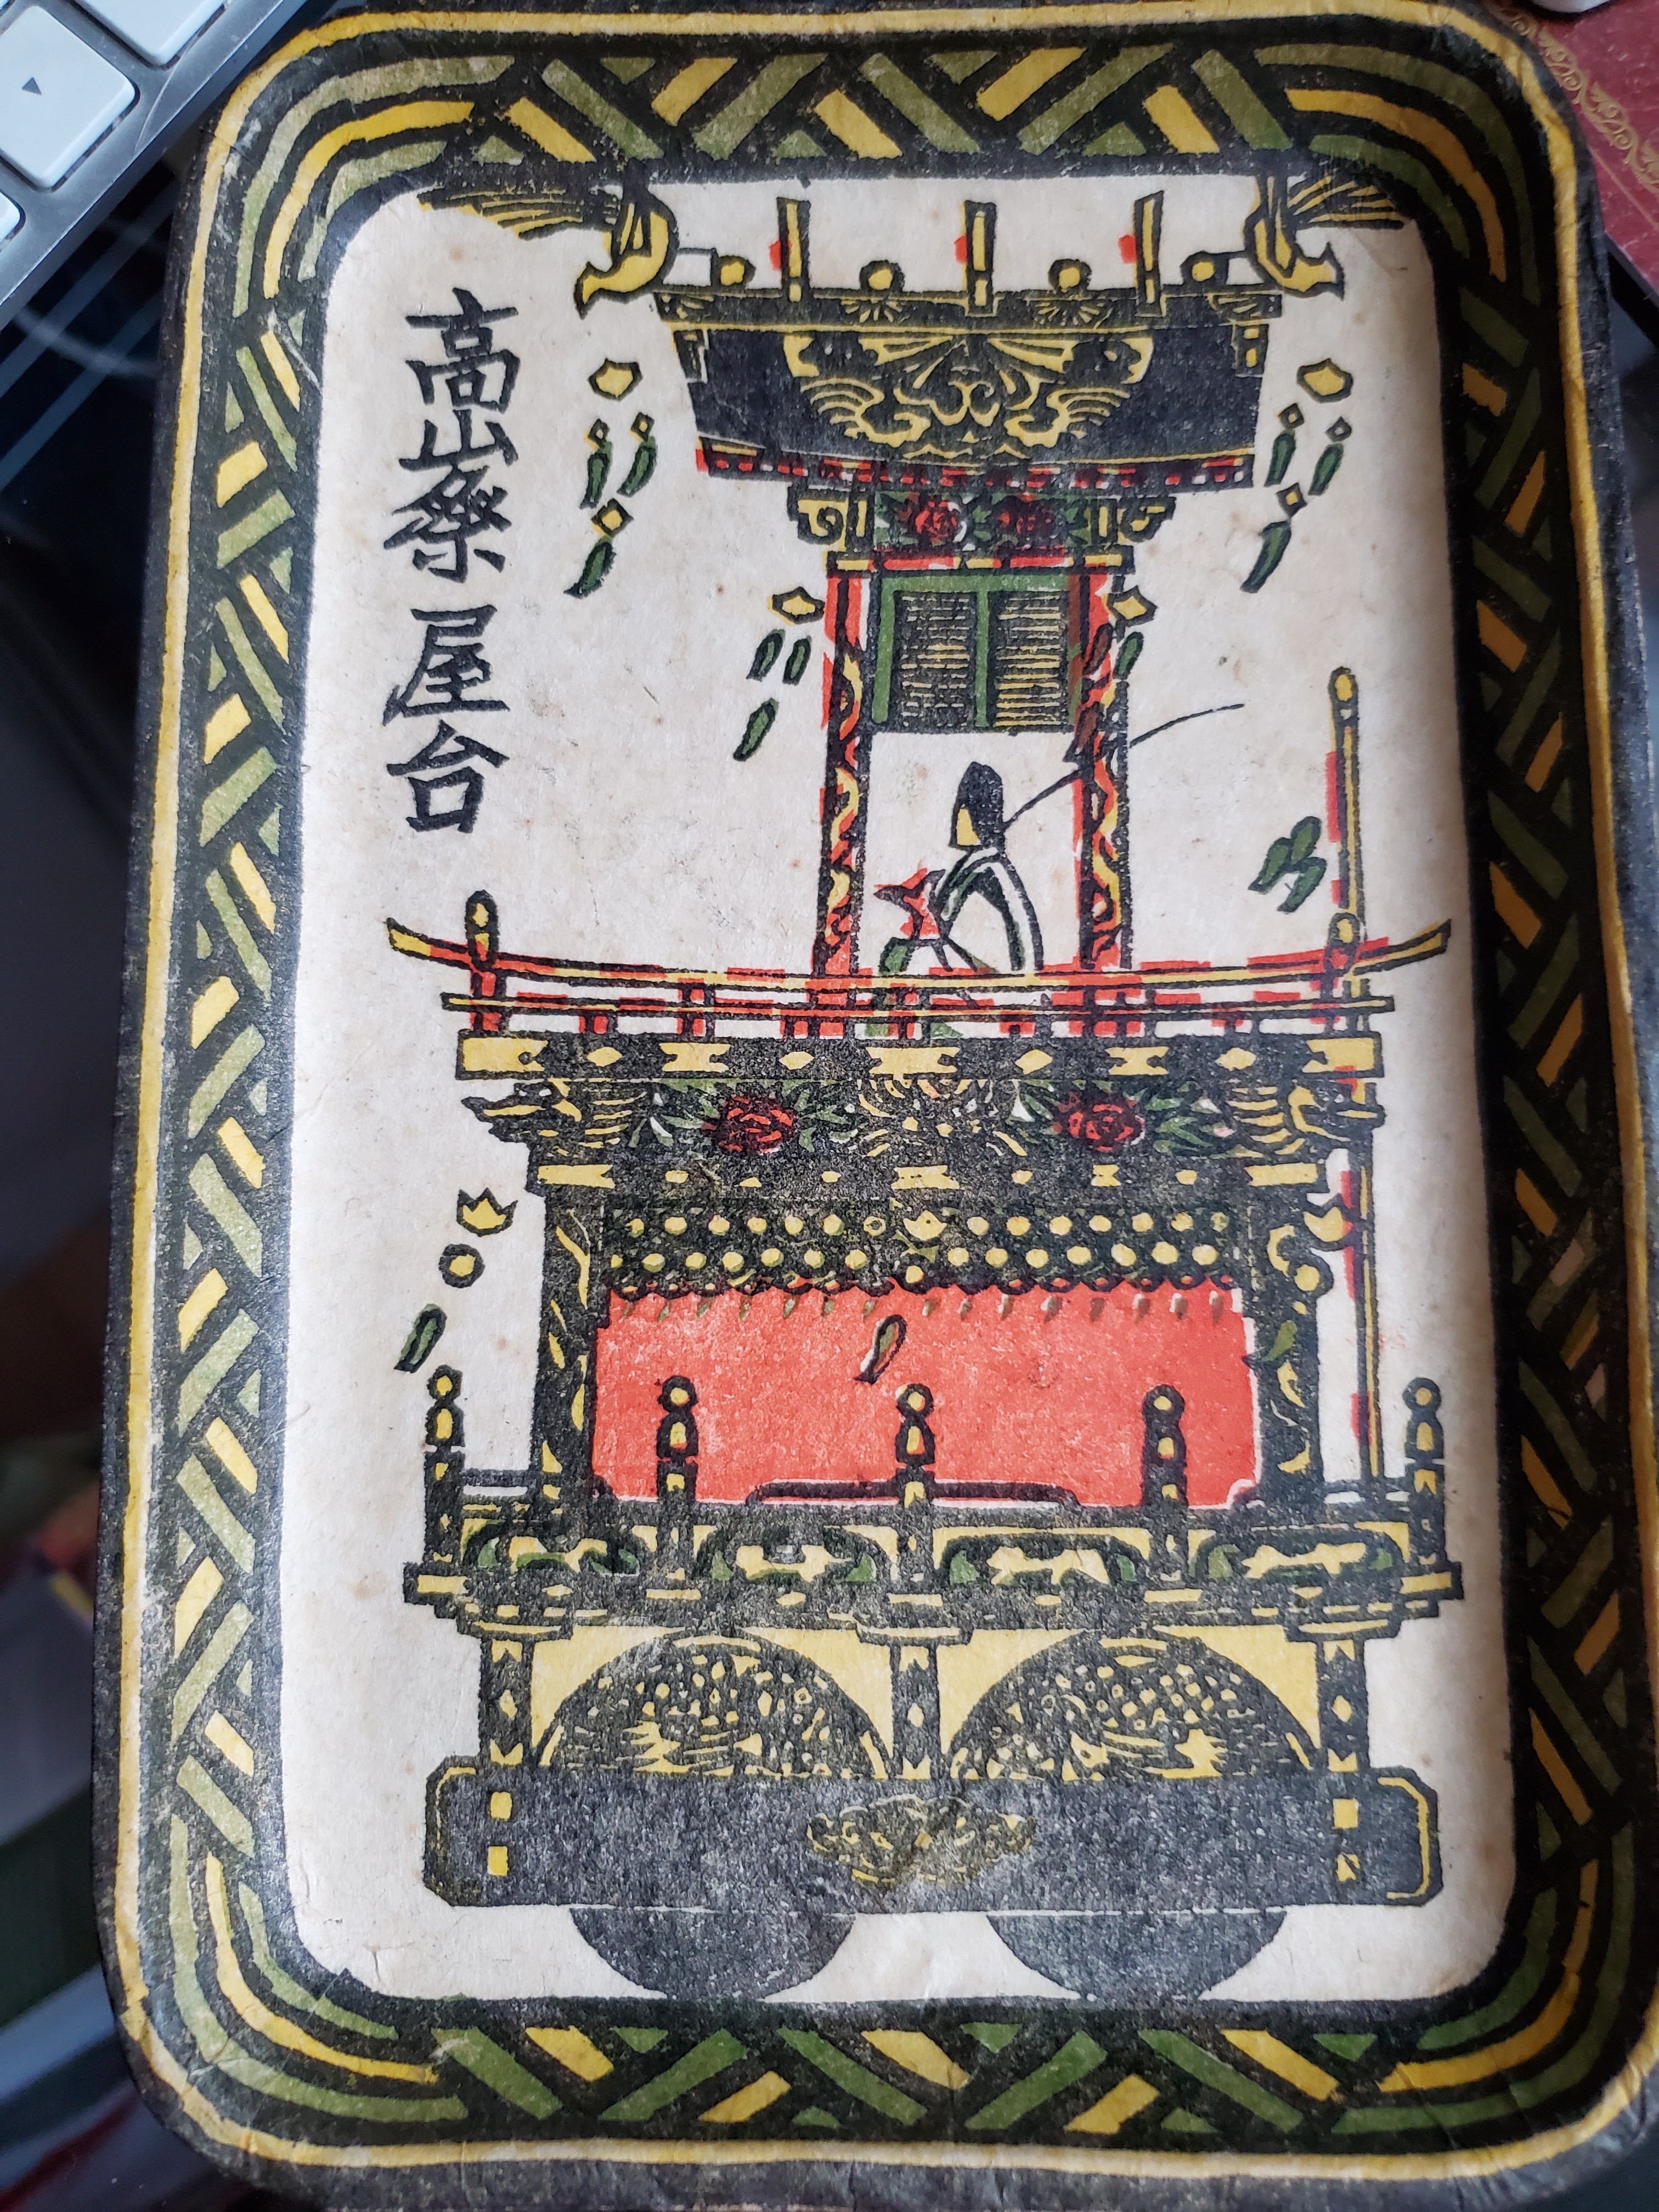 高山祭屋台